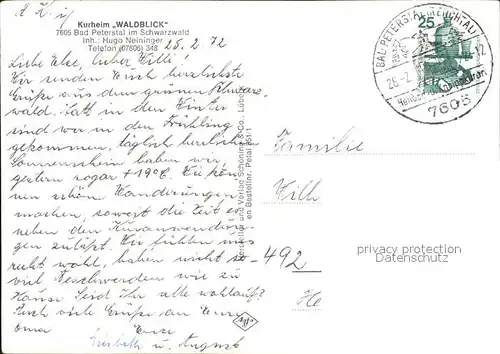 Kurheim „WALDBLICK"
7605 Bad Peterstal im Schwarzwald
Inh.: Hugo Neininger
Telefon (07806) 348
25.2.72
Liebe Else, lieber Willi!
Wir senden Euch herzlichste
Grüße aus dem grünen Schwarz-
wald. Satt in den Winter
sind wir in den Frühling
gekommen, täglich herrlichen
Sonnenschein haben wir,
gestern sogar +19°C. Wir kön-
nen schöne Wanderungen
machen, soweit die Zeit es
neben den Kuranwendun-
gen zuläßt. Wir fühlen uns
recht wohl, haben nicht so
viel Beschwerden wie zu
Hause. Seid Ihr alle wohlauf?
Auch viele Grüße an Eure
Oma Eure
Elisabeth u. August
Hersteller und Verlag Schöning & Co., Lübeck
BAD PETERSTAL (RENCHTAL)
25
7605
Familie
Willi
492
He
privacy protection
watermark
Agfa